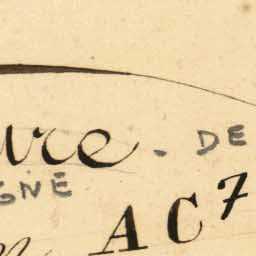 ure. DE
GNE
AC7